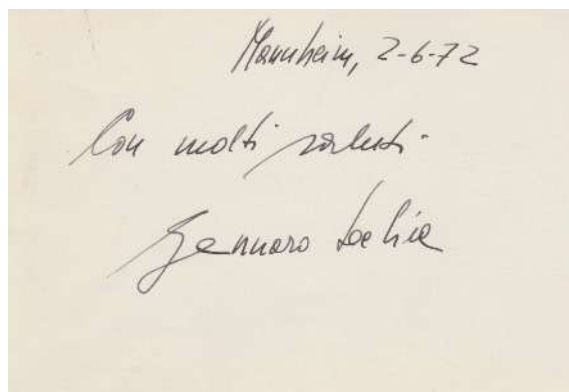 Mannheim, 2-6-72
Con molti saluti
Gennaro